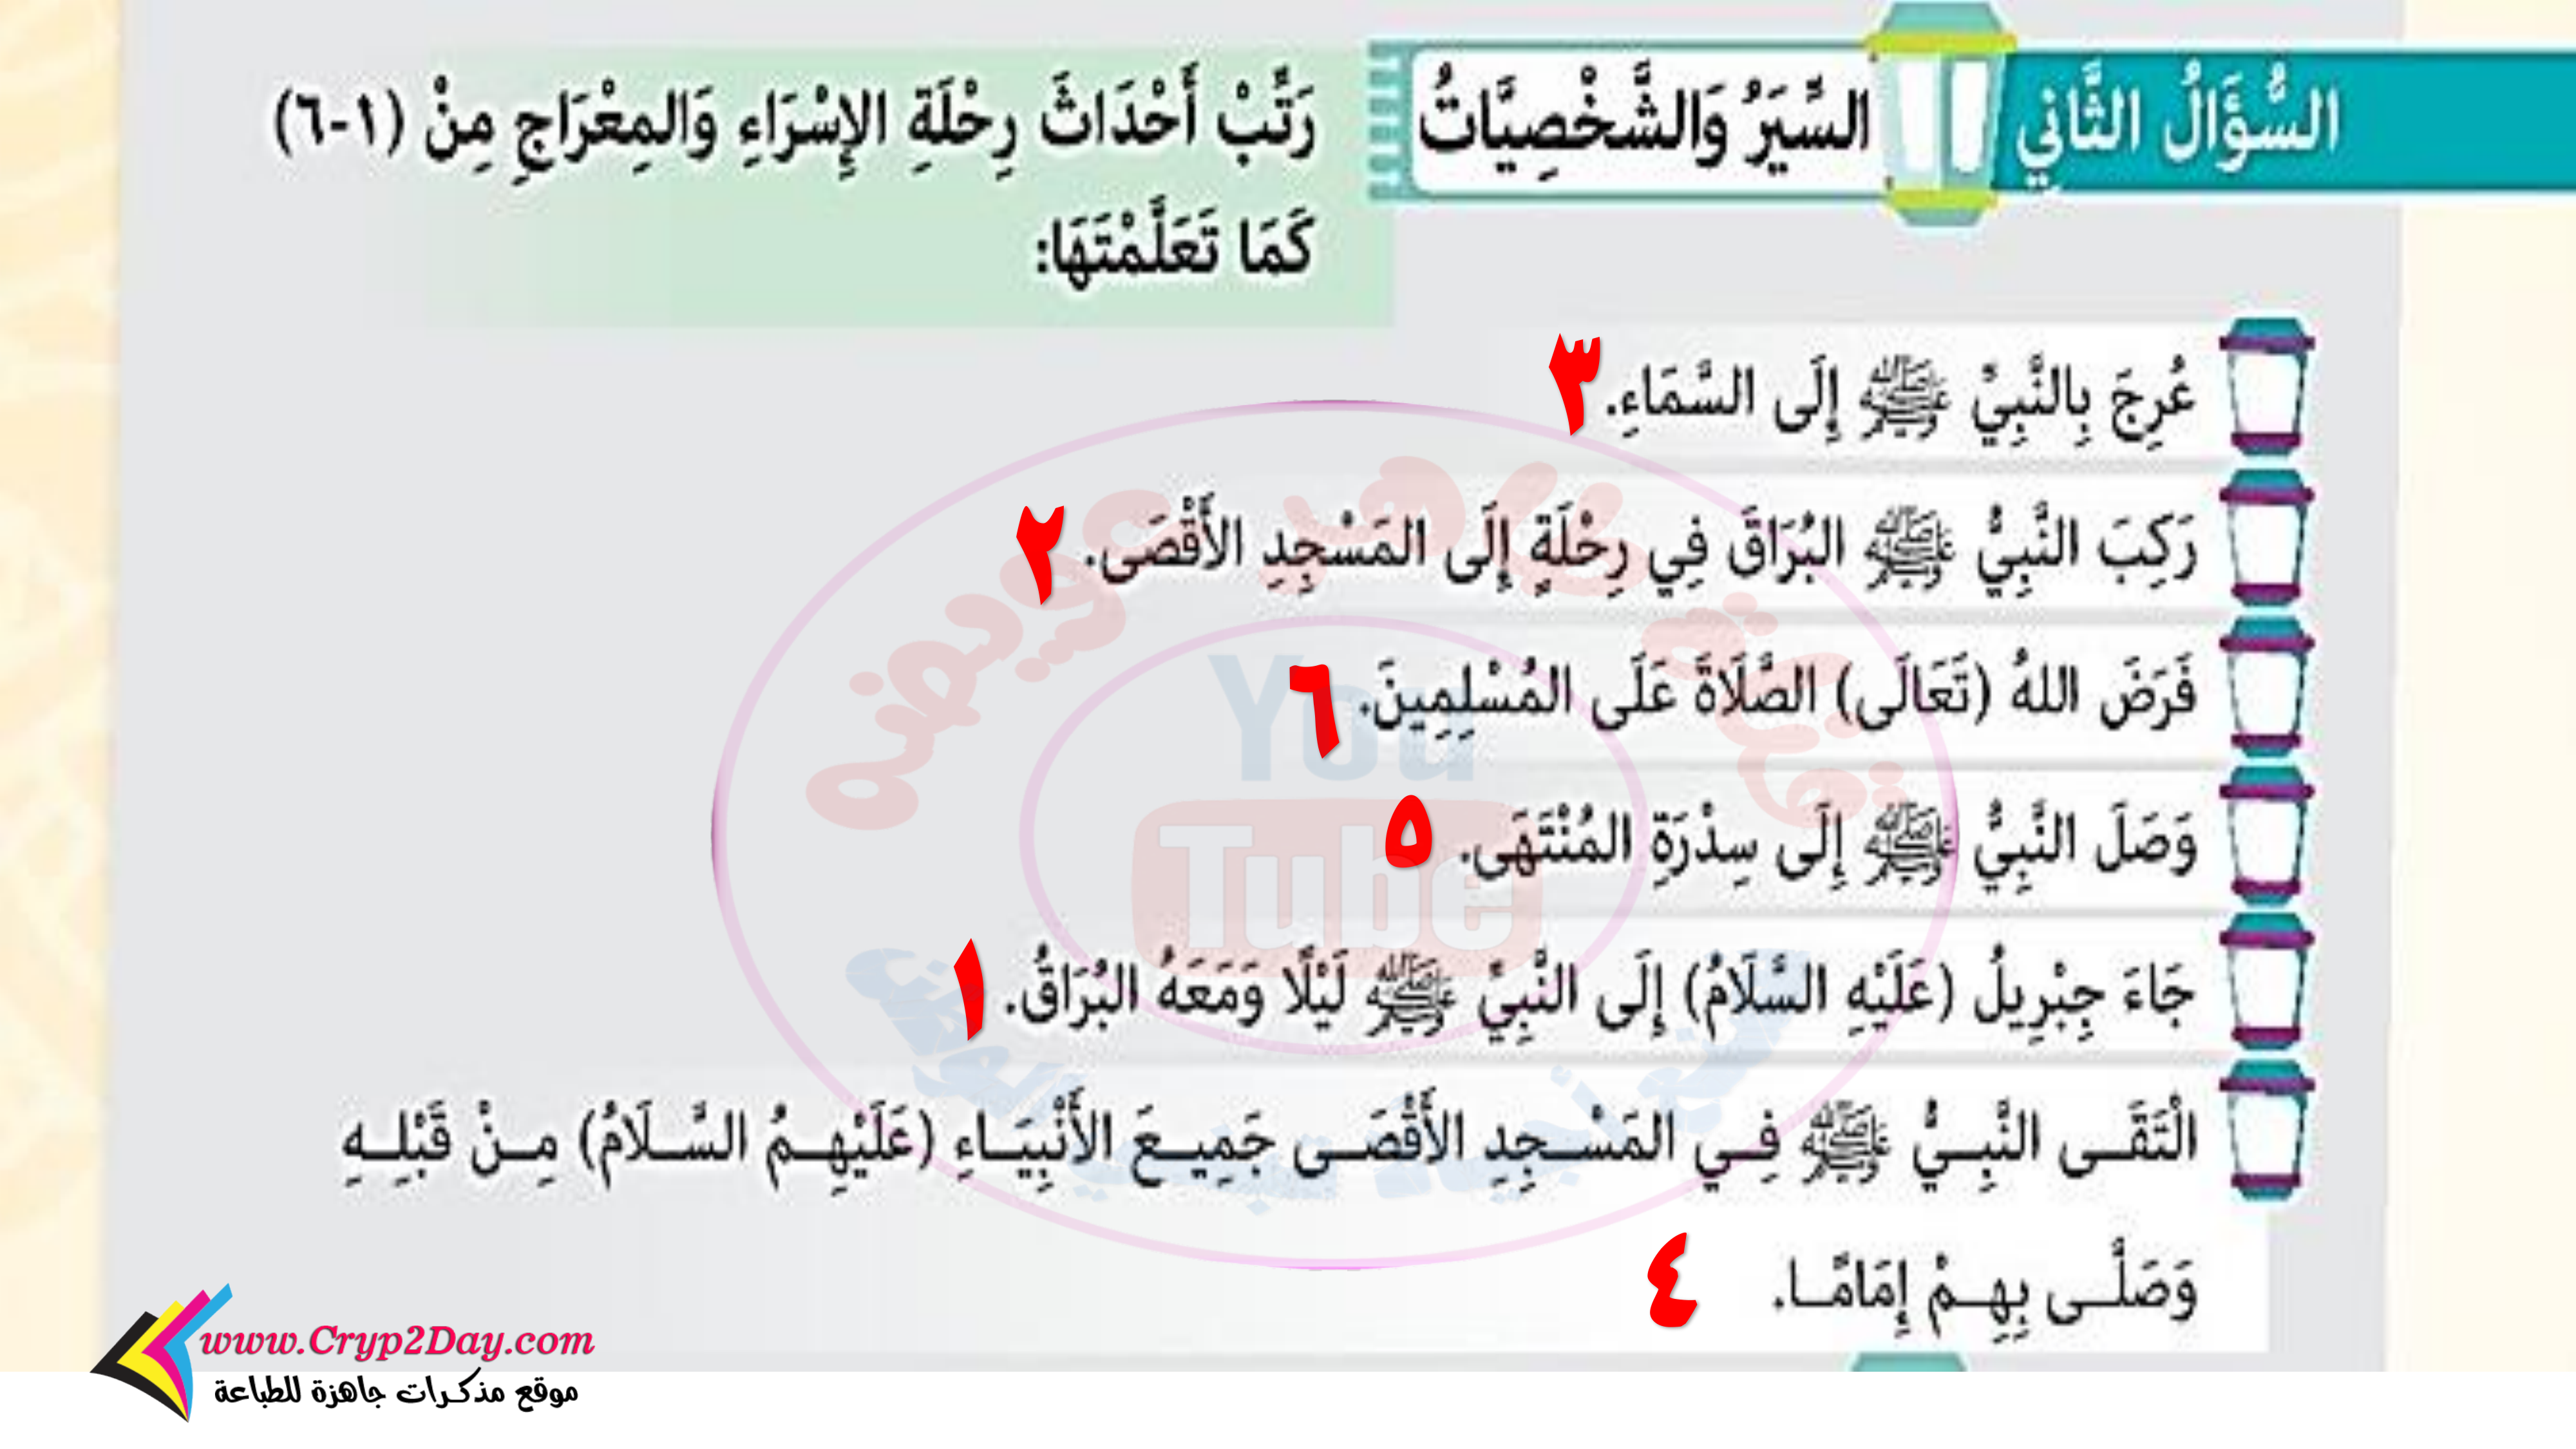 السُّؤَالُ الثَّانِي
السِّيَرُ وَالشَّخْصِيَّاتُ
رَتِّبْ أَحْدَاثَ رِحْلَةِ الإِسْرَاءِ وَالمِعْرَاجِ مِنْ (١-٦)
كَمَا تَعَلَّمْتَهَا:
عُرِجَ بِالنَّبِيِّ ﷺ إِلَى السَّمَاءِ. ٣
رَكِبَ النَّبِيُّ ﷺ البُرَاقَ فِي رِحْلَةٍ إِلَى المَسْجِدِ الأَقْصَى. ٢
فَرَضَ اللهُ (تَعَالَى) الصَّلَاةَ عَلَى المُسْلِمِينَ. ٦
وَصَلَ النَّبِيُّ ﷺ إِلَى سِدْرَةِ المُنْتَهَى. ٥
جَاءَ جِبْرِيلُ (عَلَيْهِ السَّلَامُ) إِلَى النَّبِيِّ ﷺ لَيْلًا وَمَعَهُ البُرَاقُ. ١
الْتَقَى النَّبِيُّ ﷺ فِي المَسْجِدِ الأَقْصَى جَمِيعَ الأَنْبِيَاءِ (عَلَيْهِمُ السَّلَامُ) مِنْ قَبْلِهِ
وَصَلَّى بِهِمْ إِمَامًا. ٤
You
Tube
www.Cryp2Day.com
موقع مذكرات جاهزة للطباعة